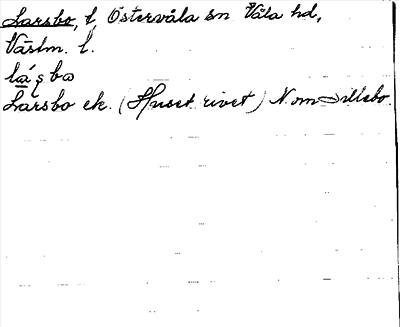 Larsbo, l, Östervåla sn Våla hd,
Västm. l.
láʂbo
Larsbo ek. (Huset rivet) N om Sillsbo.